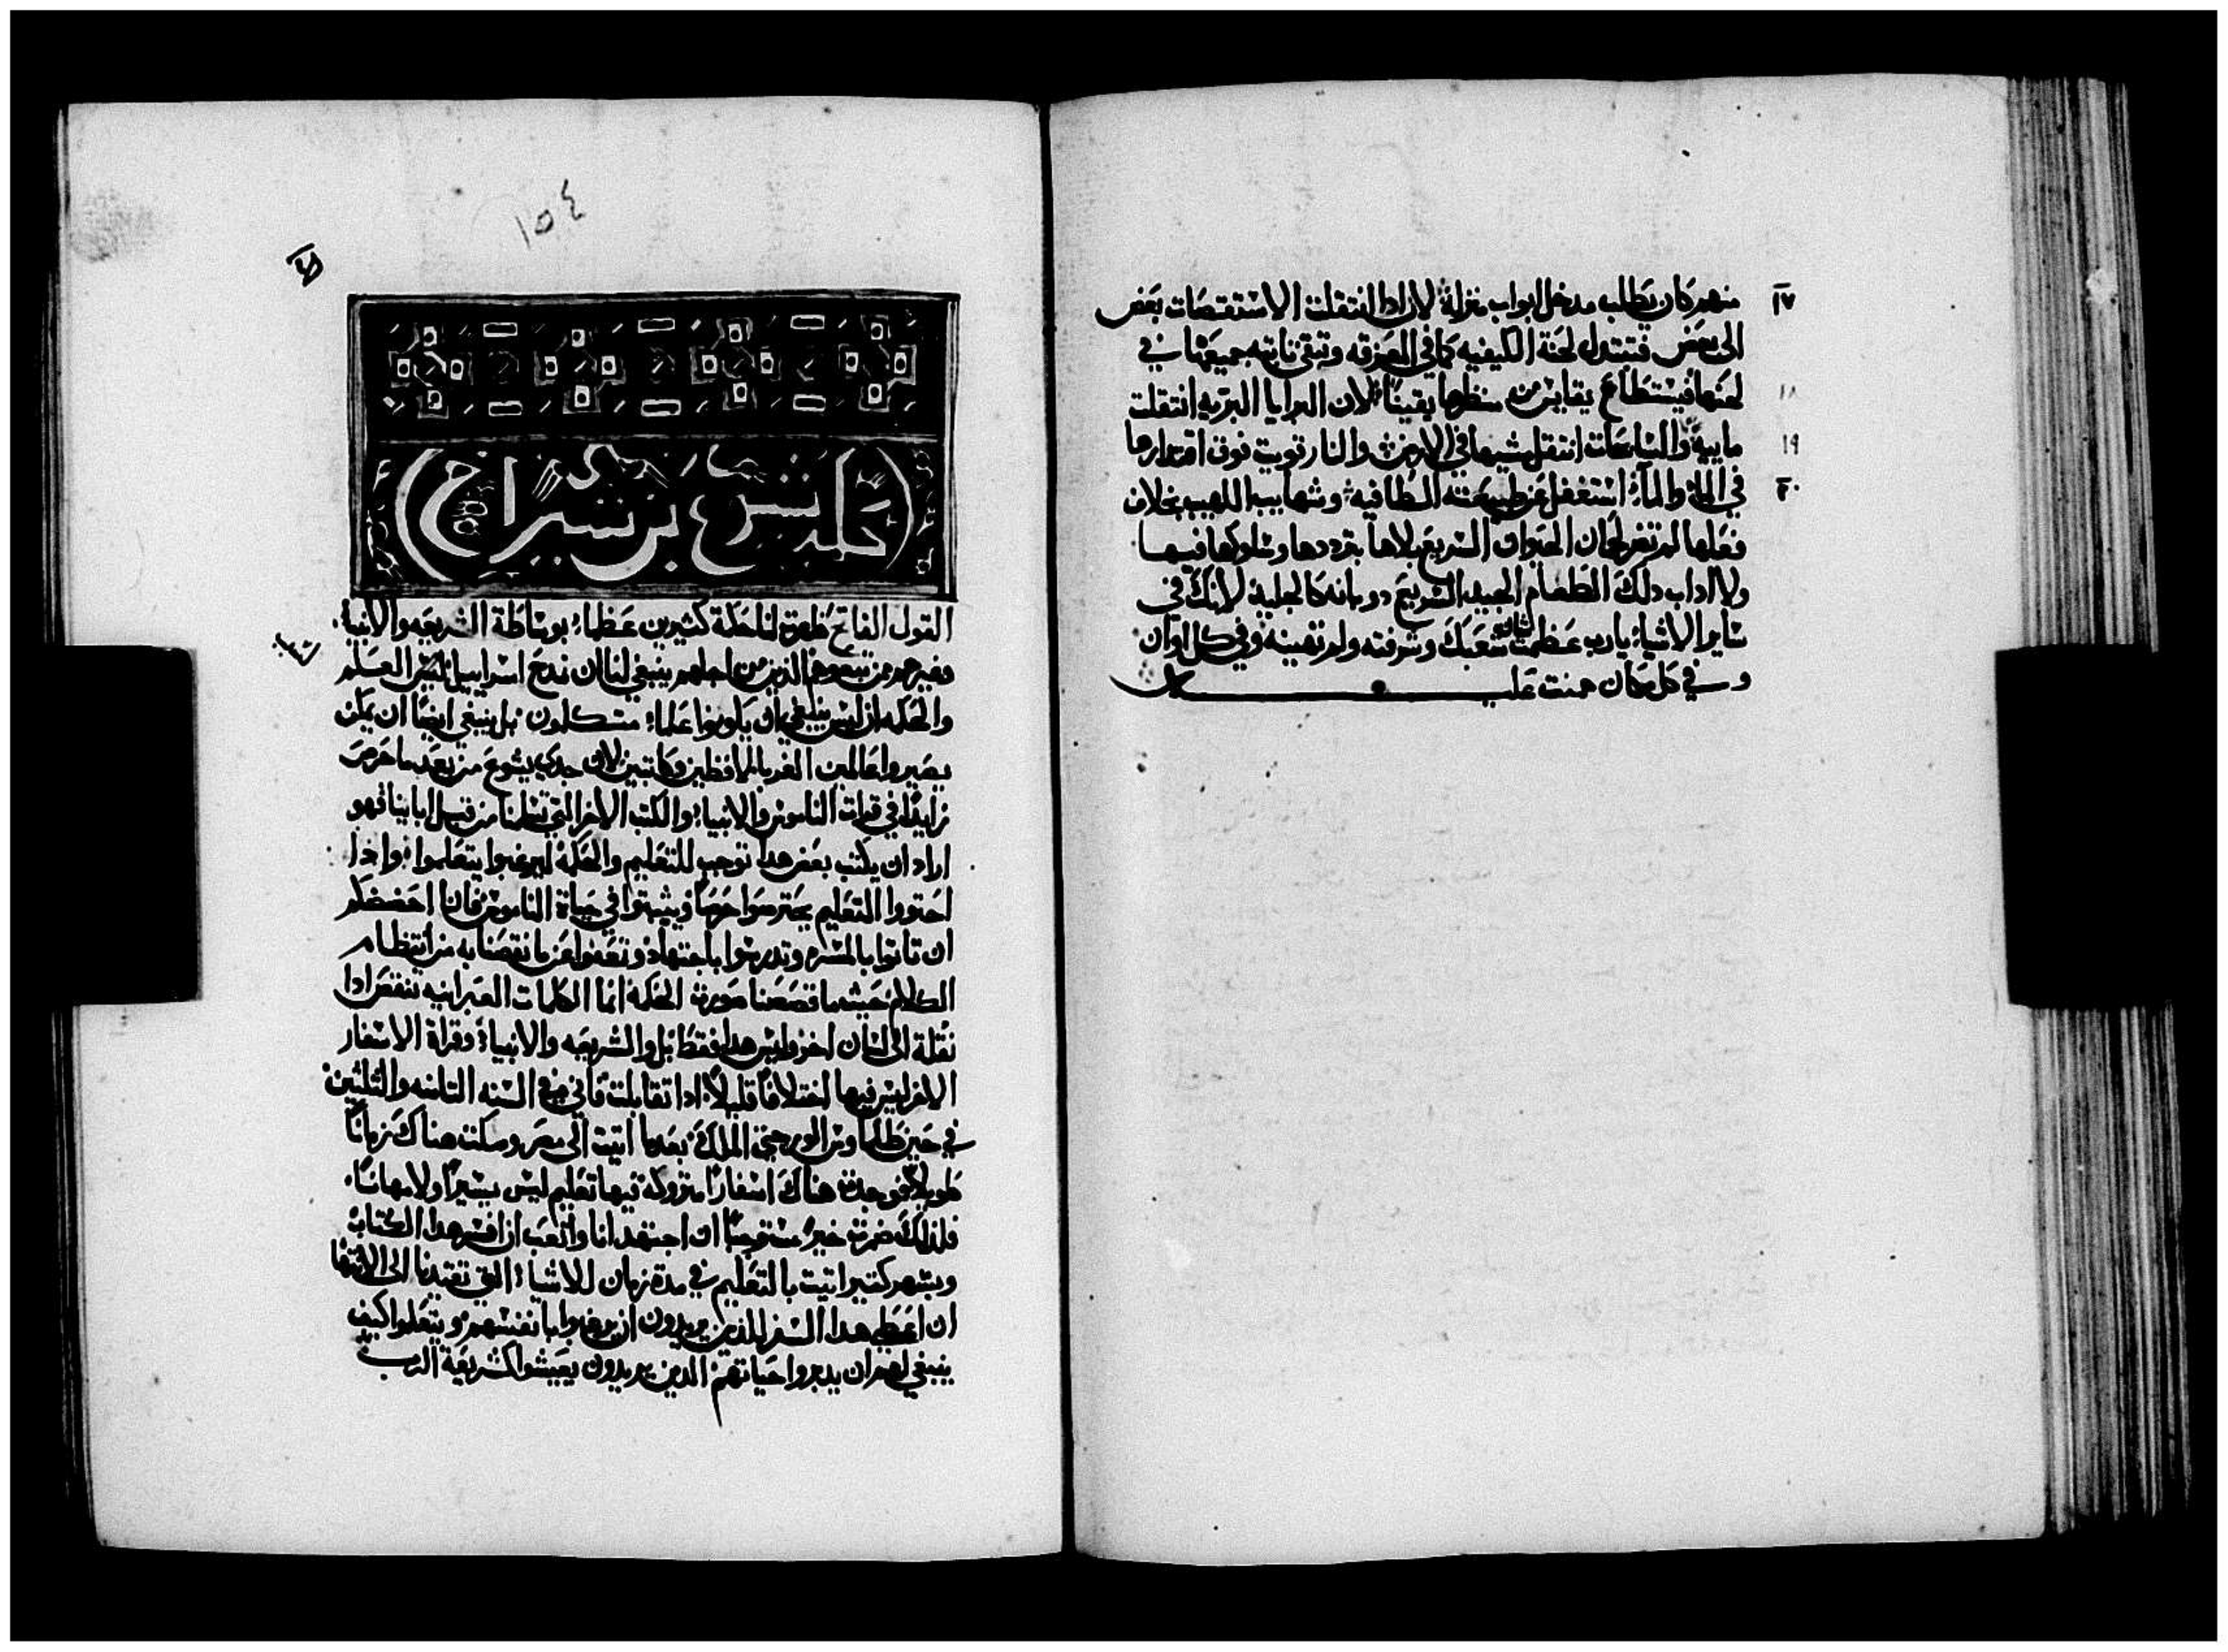 ١٧ منهم كان يطلب مدخل ابواب منزله لان ادا انتقلت الاستقصات بعض
الى بعض فتتبدل لحنة الكيفيه كما في المعزقه وتبقى تابته جميعها في
١٨ لحنها فيستطاع يقايس من منظرها يقينًا لان البرايا البريه انتقلت
١٩ ماييه والسابحات انتقل مشيها في الارض والنار قويت فوق اقتدارها
٢٠ في الماء والماء استغفل عن طبيعته المطافيه وشهابيب اللهيب بخلاف
فعلها لم تضر لحمان الحيوان السريع بلاها بترددها وسلوكها فيها
ولا اداب دلك الطعام الجيد السريع دوبانه كالجليد لانك في
ساير الاشياء يارب عظمت شان شعبك وشرفته ولم تهينه وفي كل اوان
وفي كل مكان
١٥٤
حكمة يشوع بن شيراخ
القول الفاتح ظاهرة لنا حكمة كثيرين عظماء بوساطة الشريعه والانبياء
وغيرهم من تبعوهم الذين من اجلهم ينبغي لنا ان نمدح اسراييل لحسن العلم
والحكمه اذ ليس ينبغي ان يكونوا علماء متكلمون بل ينبغي ايضًا ان يمكن
يصيروا عالمين الغربا لافظين وكاتبين لان جدي يشوع من بعد ما حرص
زايدًا في قراة الناموس والانبياء والكتب الاخر التي تسلمنا من قبل ابايينا فهو
اراد ان يكتب بعض هدا توجب للتعليم والحكمة ليرغبوا يتعلموا واذا
احتووا التعليم يحترسوا حرصًا ويثبتوا في حياة الناموس فانا احضضكم
ان تاتوا بالمسره وتدرسوا باجتهاد وتعفوا عن ما نقصنا به من انتظام
الكلام حيثما قصصنا صورة الحكمة انما الكلمات العبرانيه تنقض ادا
نقلة الى لسان اخر وليس هدا فقط بل والشريعه والانبياء وقراة الاسفار
الاخر ليس فيها اختلافًا قليلاً ادا تقابلت فاني في السنه التامنه والثلثين
في حين بطلماوس الورجتي الملك بعدما اتيت الى مصر ومكتت هناك زمانًا
طويلاً فوجدت هناك اسفارًا متروكة فيها تعليم ليس يسيرًا ولا مهانًا
فلذلك ضرت خيرًا مستوجبًا ان اجتهد انا واتعب ان افسر هدا الكتاب
وبسهر كتير اتيت بالتعليم في مدة زمان للاشياء التي تقتيدنا الى الانتها
ان اعطي هدا السفر للذين يريدون ان يرغبوا بانفسهم ويتعلموا كيف
ينبغي لهم ان يدبروا حياتهم الدين يريدون يعيشوا كشريعة الرب